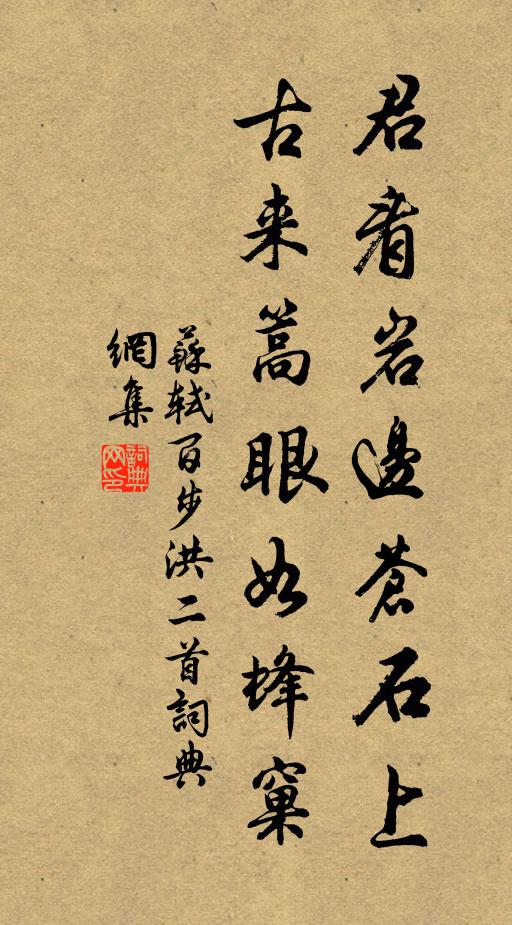 君看岩邊蒼石上
古来篙眼如蜂窠
蘇軾百步洪二首詞典
網集
詞典
网印